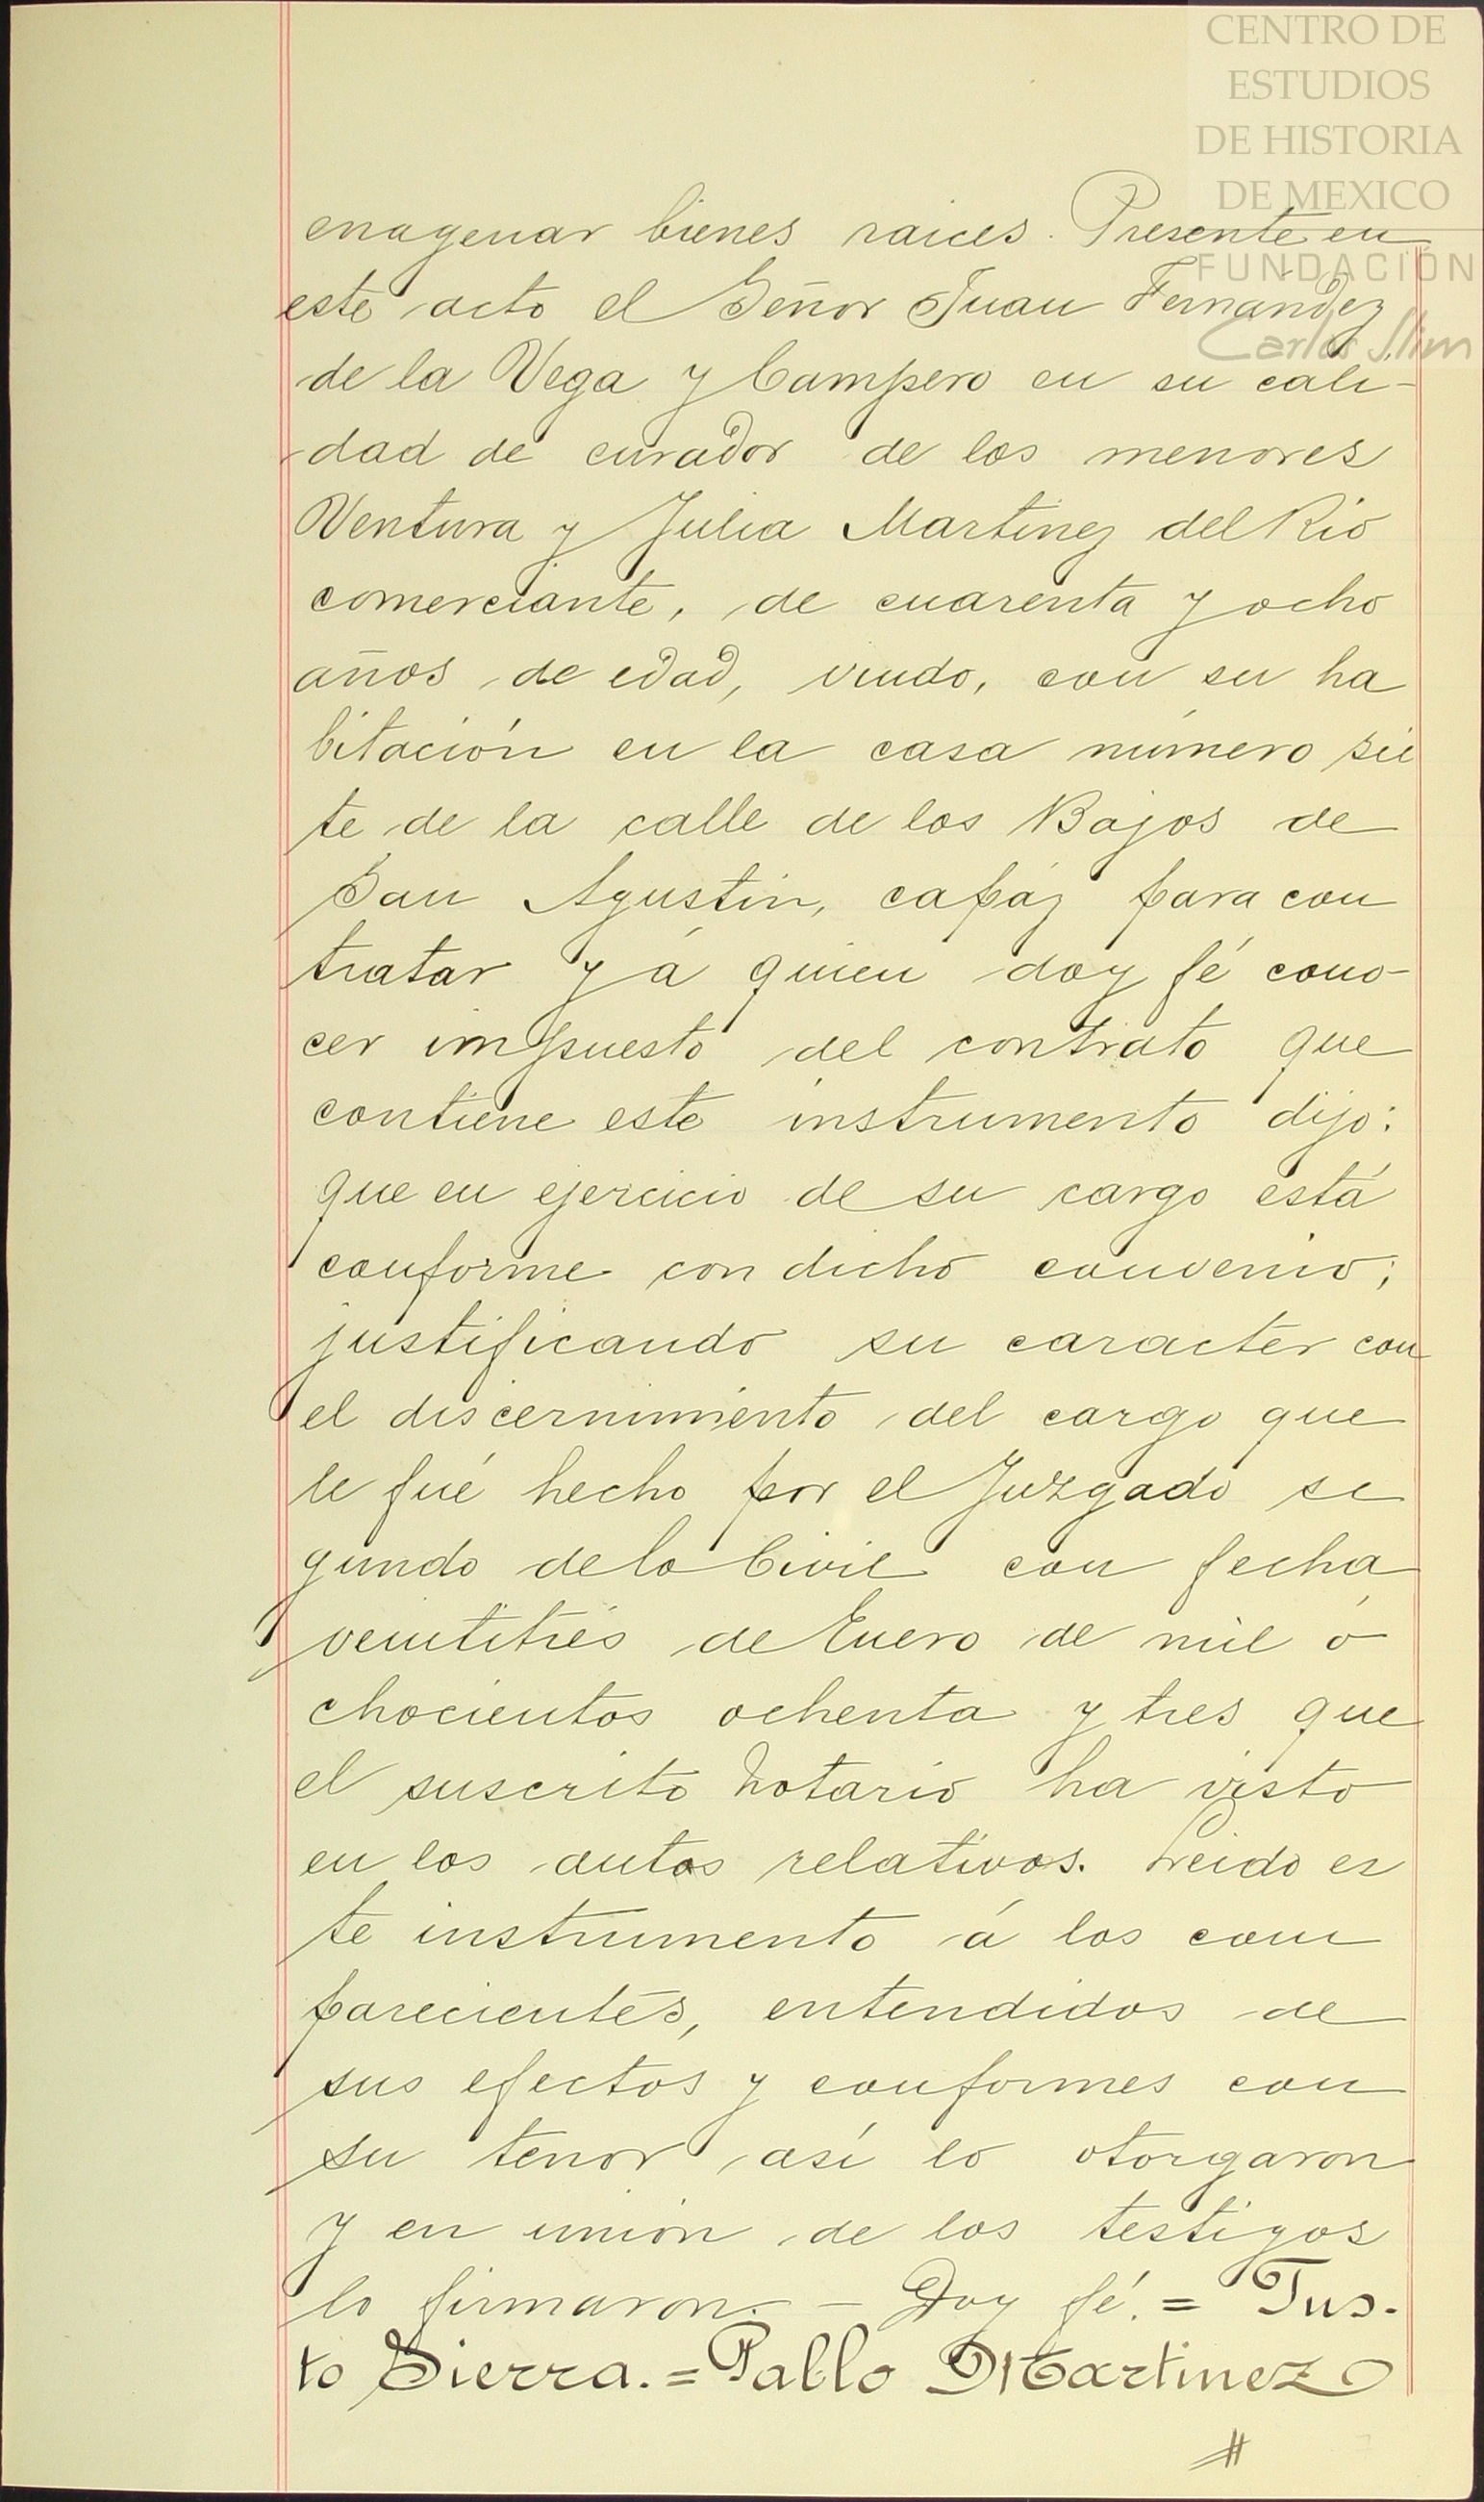 CENTRO DE
ESTUDIOS
DE HISTORIA
DE MEXICO
FUNDACIÓN
Carlos Slim
enagenar bienes raices. Presente en
este acto el Señor Juan Fernandez
de la Vega y Campero en su cali-
dad de curador de los menores
Ventura y Julia Martinez del Rio
comerciante, de cuarenta y ocho
años de edad, viudo, con su ha
bitación en la casa número sie
te de la calle de los Bajos de
San Agustin, capáz para con
tratar y á quien doy fé cono-
cer impuesto del contrato que
contiene este instrumento dijo:
que en ejercicio de su cargo está
conforme con dicho convenio;
justificando su caracter con
el discernimiento del cargo que
le fué hecho por el Juzgado se
gundo de lo Civil con fecha
veintitrés de Enero de mil o
chocientos ochenta y tres que
el suscrito Notario ha visto
en los autos relativos. Leido es
te instrumento á los com
parecientes, entendidos de
sus efectos y conformes con
su tenor así lo otorgaron
y en unión de los testigos
lo firmaron. — Doy fé. = Jus-
to Sierra. = Pablo Martinez
#